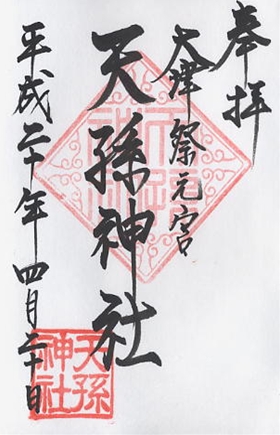 奉拝
大津祭元宮
天孫神社
平成二十年四月二十日
天孫
神社